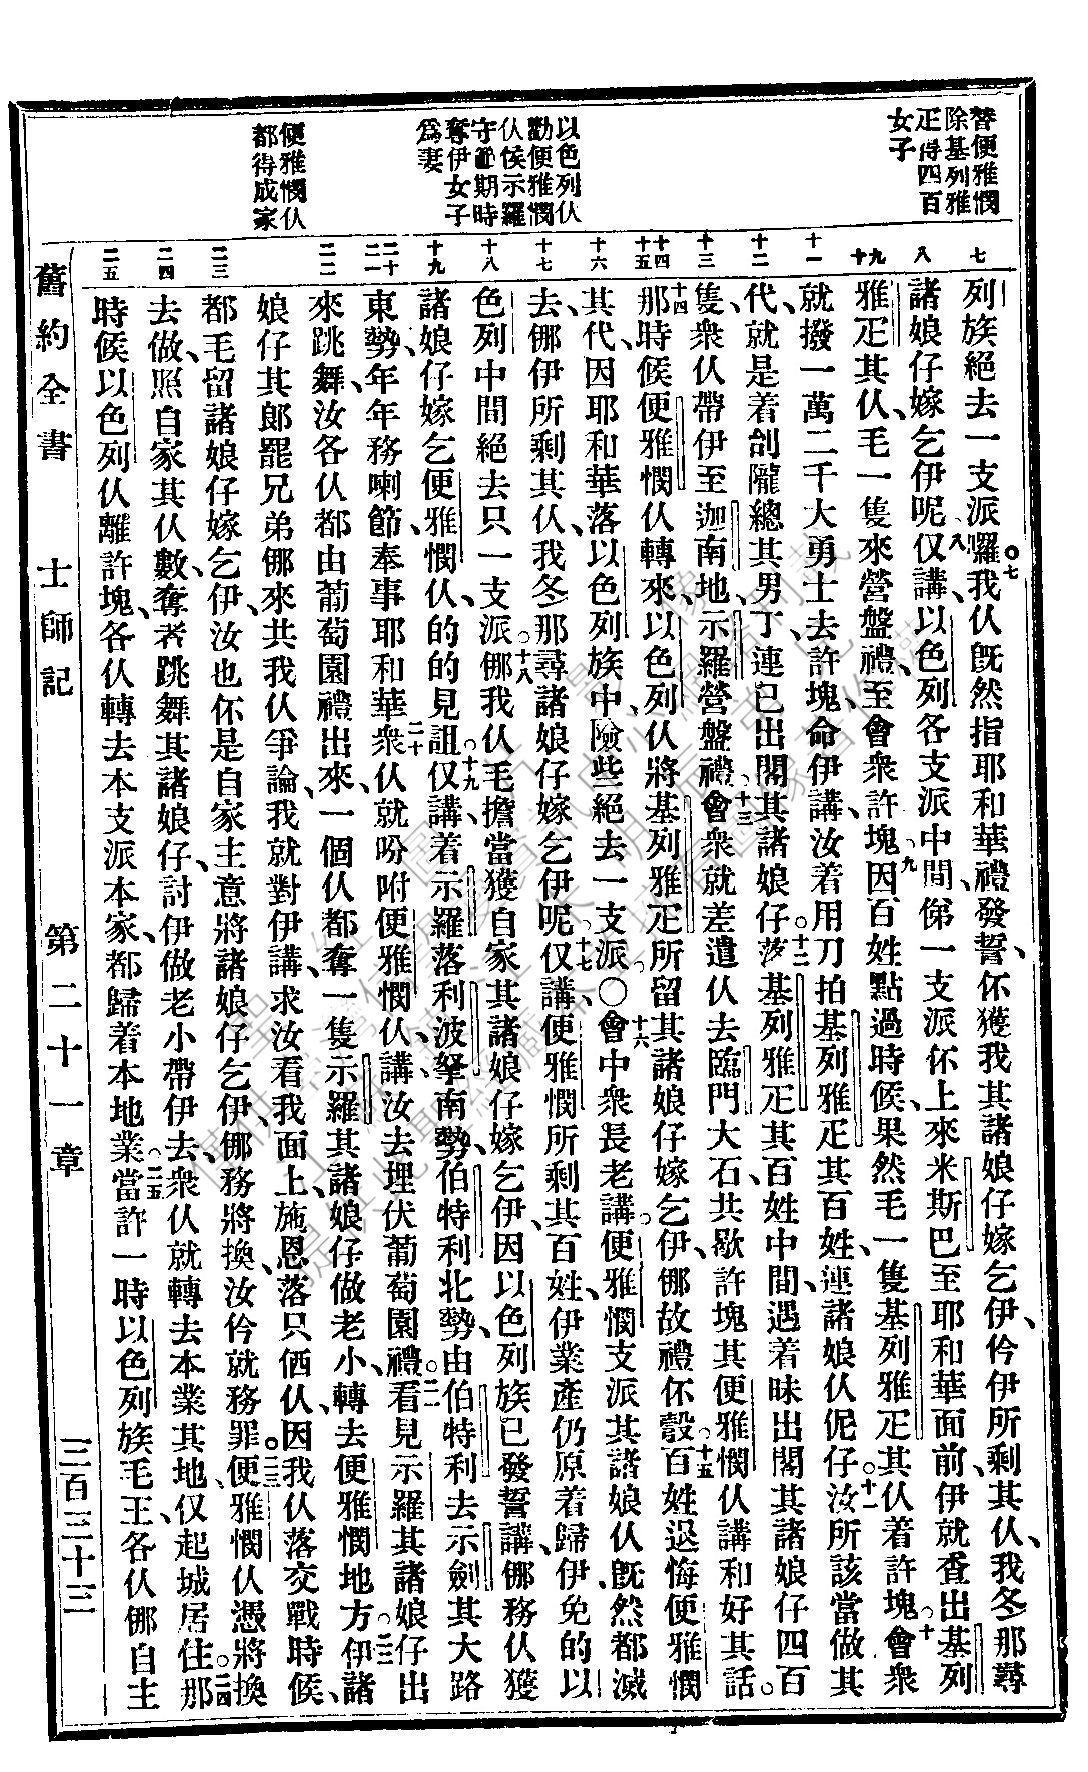 替便雅憫
除基列雅
疋得四百
女子
以色列仫
勸便雅憫
仫候示羅
守節期時
奪伊女子
爲妻
便雅憫仫
都得成家
七
八
九
十
十一
十二
十三
十四
十五
十六
十七
十八
十九
二十
二一
二二
二三
二四
二五
列族絕去一支派囉○七我仫旣然指耶和華禮發誓、伓獲我其諸娘仔嫁乞伊、仱伊所剩其仫、我冬那尋
諸娘仔嫁乞伊呢、八仅講、以色列各支派中間、俤一支派伓上來米斯巴至耶和華面前、伊就查出基列
雅疋其仫、毛一隻來營盤禮、至會衆許塊、九因百姓點過時候、果然毛一隻基列雅疋其仫着許塊。十會衆
就撥一萬二千大勇士去許塊、命伊講、汝着用刀拍基列雅疋其百姓、連諸娘仫伲仔。十一汝所該當做其
代、就是着刣隴總其男丁、連已出閣其諸娘仔。十二落基列雅疋其百姓中間、遇着昧出閣其諸娘仔四百
隻、衆仫帶伊至迦南地、示羅營盤禮、十三會衆就差遣仫去臨門大石、共歇許塊其便雅憫仫講和好其話。
十四那時候便雅憫仫轉來、以色列仫將基列雅疋所留其諸娘仔嫁乞伊、郍故禮伓彀、十五百姓退悔便雅憫
其代、因耶和華落以色列族中、險些絕去一支派。○十六會中衆長老講、便雅憫支派其諸娘仫旣然都滅
去、郍伊所剩其仫、我冬那尋諸娘仔嫁乞伊呢、十七仅講、便雅憫所剩其百姓、伊業產仍原着歸伊、免的以
色列中間絕去只一支派。十八郍我仫毛擔當獲自家其諸娘仔嫁乞伊、因以色列族已發誓講、郍務仫獲
諸娘仔嫁乞便雅憫仫、的的見詛。十九仅講、着示羅落利波拏南勢、伯特利北勢、由伯特利去示劍其大路
東勢、年年務喇節奉事耶和華、二十衆仫就吩咐便雅憫仫講、汝去埋伏葡萄園禮。二一看見示羅其諸娘仔出
來跳舞、汝各仫都由葡萄園禮出來、一個仫都奪一隻示羅其諸娘仔做老小、轉去便雅憫地方。二二伊諸
娘仔其郎罷兄弟郍來共我仫爭論、我就對伊講、求汝看我面上、施恩落只倆仫、因我仫落交戰時候、
都毛留諸娘仔嫁乞伊、汝也伓是自家主意將諸娘仔乞伊、郍務將換、汝仱就務罪。二三便雅憫仫憑將換
去做、照自家其仫數、奪者跳舞其諸娘仔、討伊做老小帶伊去、衆仫就轉去本業其地、仅起城居住。二四那
時候以色列仫離許塊、各仫轉去本支派本家、都歸着本地業。二五當許一時、以色列族毛王、各仫郍自主
舊約全書
士師記
第二十一章
三百三十三